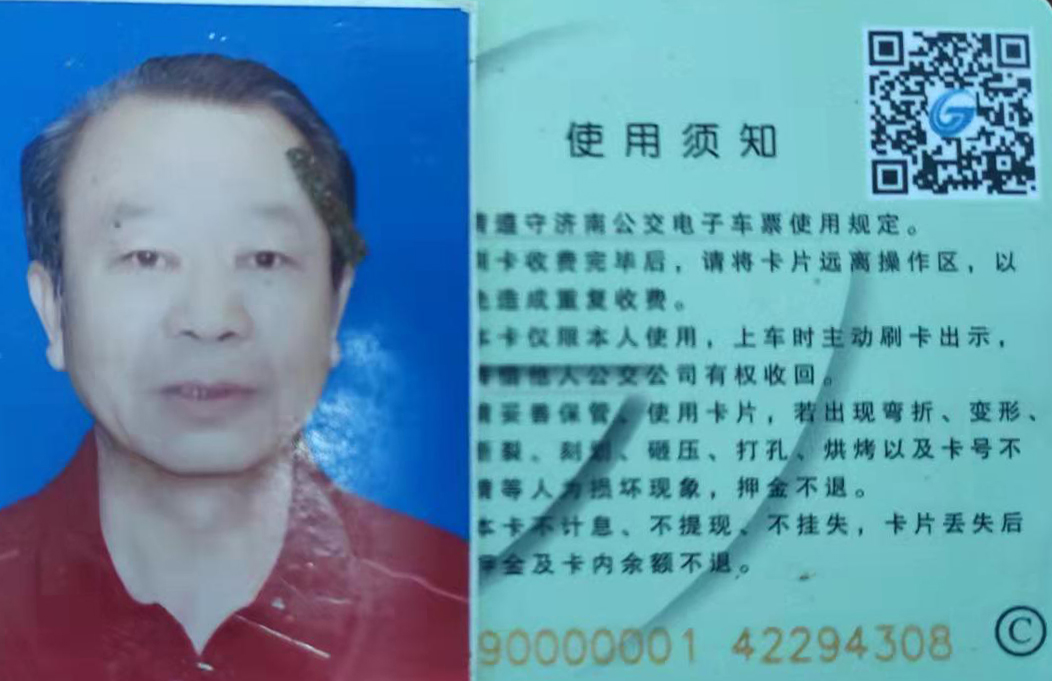 使用须知
请遵守济南公交电子车票使用规定。
刷卡收费完毕后，请将卡片远离操作区，以
免造成重复收费。
本卡仅限本人使用，上车时主动刷卡出示，
借他人公交公司有权收回。
请妥善保管、使用卡片，若出现弯折、变形、
断裂、刻划、砸压、打孔、烘烤以及卡号不
清等人为损坏现象，押金不退。
本卡不计息、不提现、不挂失，卡片丢失后
押金及卡内余额不退。
90000001 42294308 Ⓒ